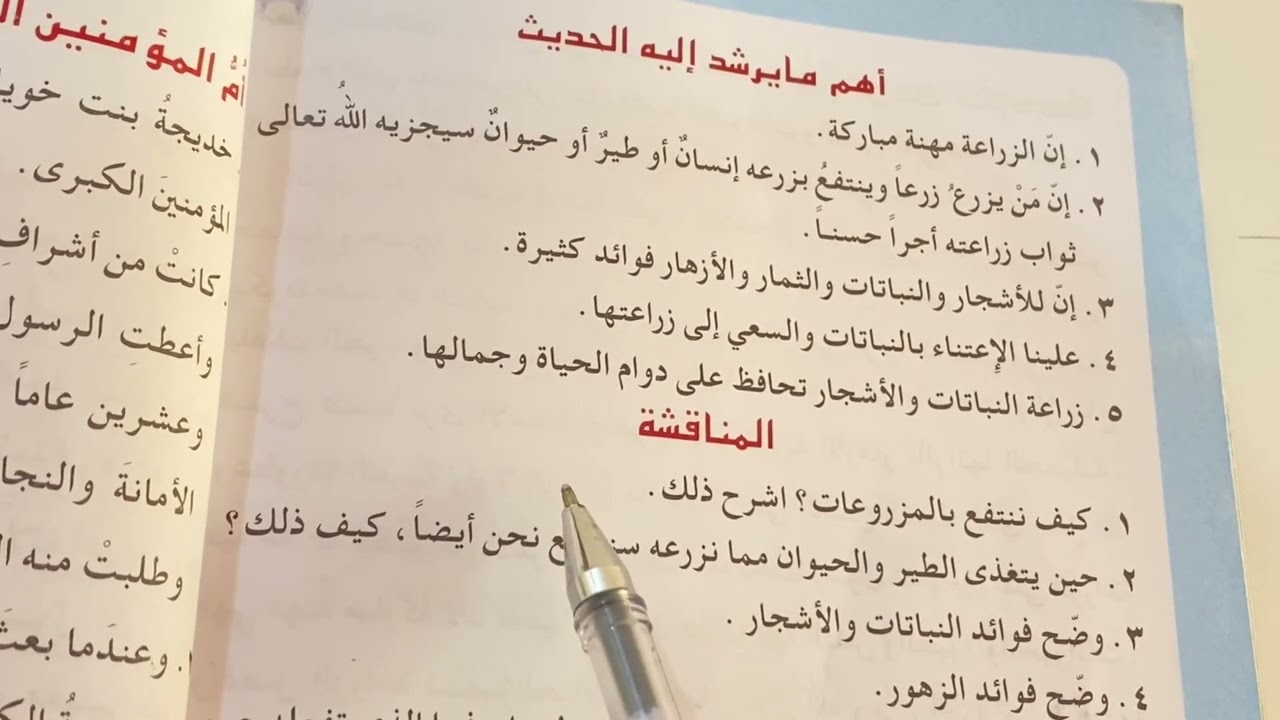 أهم مايرشد إليه الحديث
١. إنّ الزراعة مهنة مباركة.
٢. إنّ مَنْ يزرعُ زرعاً وينتفعُ بزرعه إنسانٌ أو طيرٌ أو حيوانٌ سيجزيه اللهُ تعالى
ثواب زراعته أجراً حسناً.
٣. إنّ للأشجار والنباتات والثمار والأزهار فوائد كثيرة.
٤. علينا الإِعتناء بالنباتات والسعي إلى زراعتها.
٥. زراعة النباتات والأشجار تحافظ على دوام الحياة وجمالها.
المناقشة
١. كيف ننتفع بالمزروعات؟ اشرح ذلك.
٢. حين يتغذى الطير والحيوان مما نزرعه نحن أيضاً، كيف ذلك؟
٣. وضّح فوائد النباتات والأشجار.
٤. وضّح فوائد الزهور.
أمُّ المؤمنين
خديجةُ بنت
المؤمنينَ الكبرى.
كانتْ من أشرافِ
وأعطتِ الرسول
وعشرين عاماً
الأمانةَ
وطلبتْ منه
وعندَما